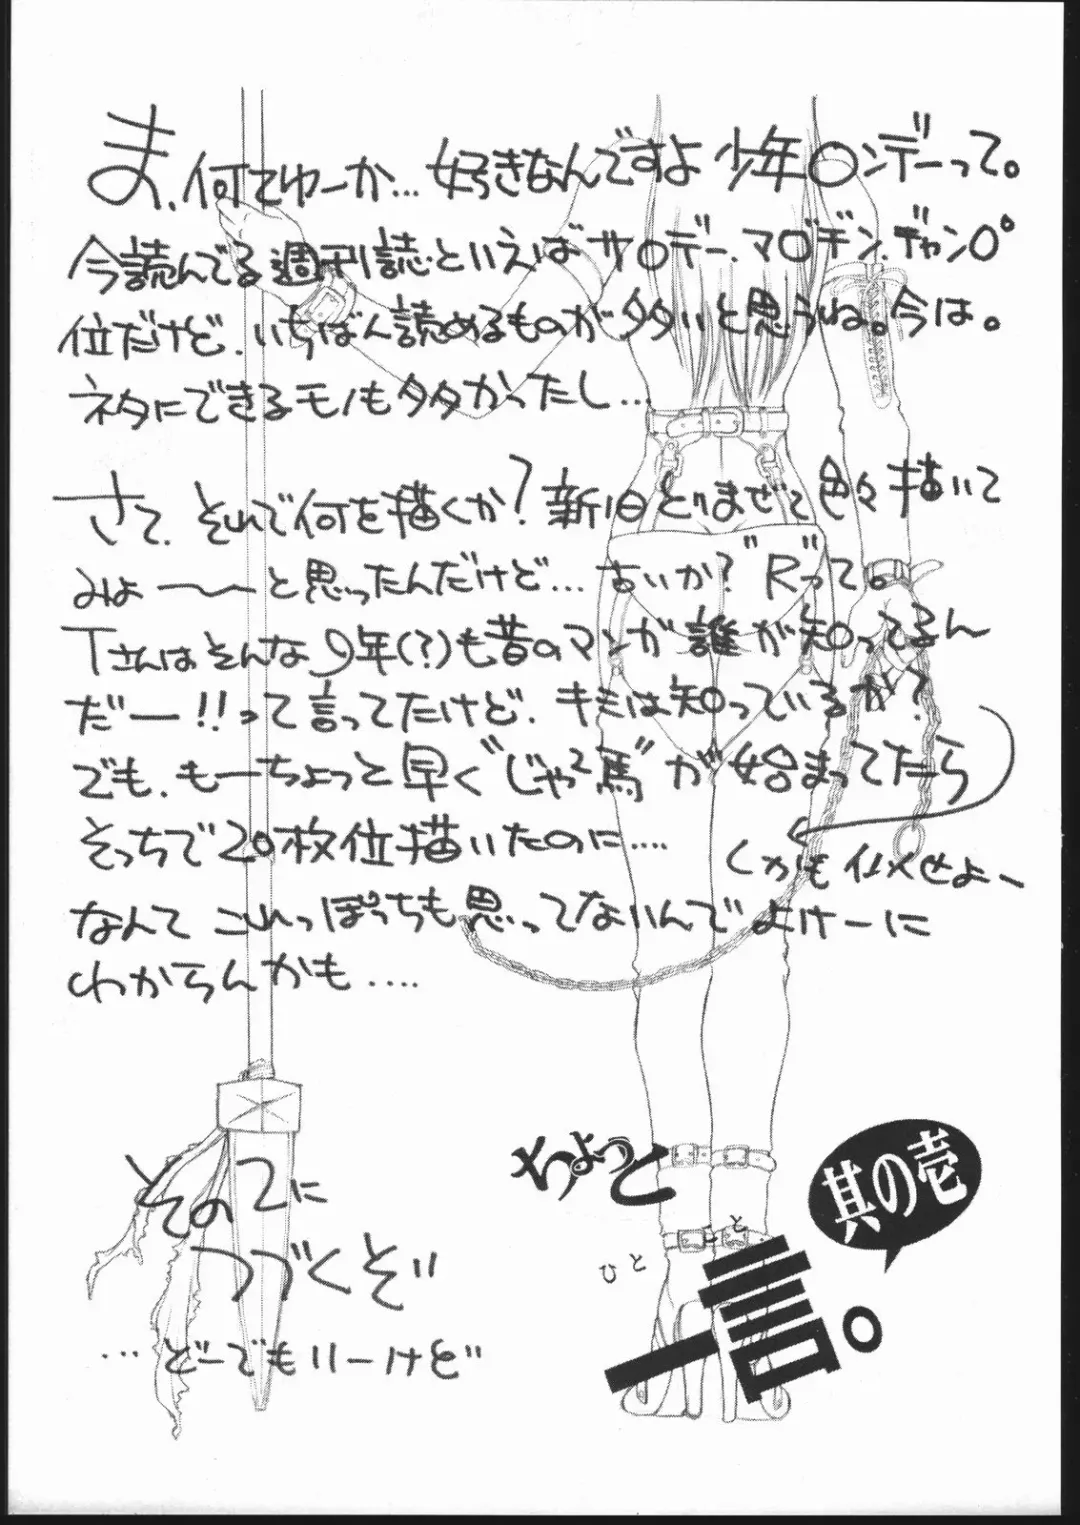 ま、何てゆーか…好きなんですよ少年〇ンデーって。
今読んでる週刊誌といえばサ〇デー、マガ〇ン、チャン〇
位だけど、いちばん読めるものが多いと思うね。今は。
ネタにできるモノも多かったし…
さて、それで何を描くか?新旧とりまぜて色々描いて
みよ〜〜と思ったんだけど…古いか?"R"って。
Tさんはそんな9年(?)も昔のマンガ誰が知ってるん
だー!!って言ってたけど、キミは知っているか?
でも、もーちょっと早く"じゃじゃ馬"が始まってたら
そっちで20枚位描いたのに….
しかもイメせよー
なんてこれっぽっちも思ってないんでよけーに
わからんかも….
その2に
つづくぞい
…どーでもいーけど
ちょっと
ひと こと
一言。
其の壱